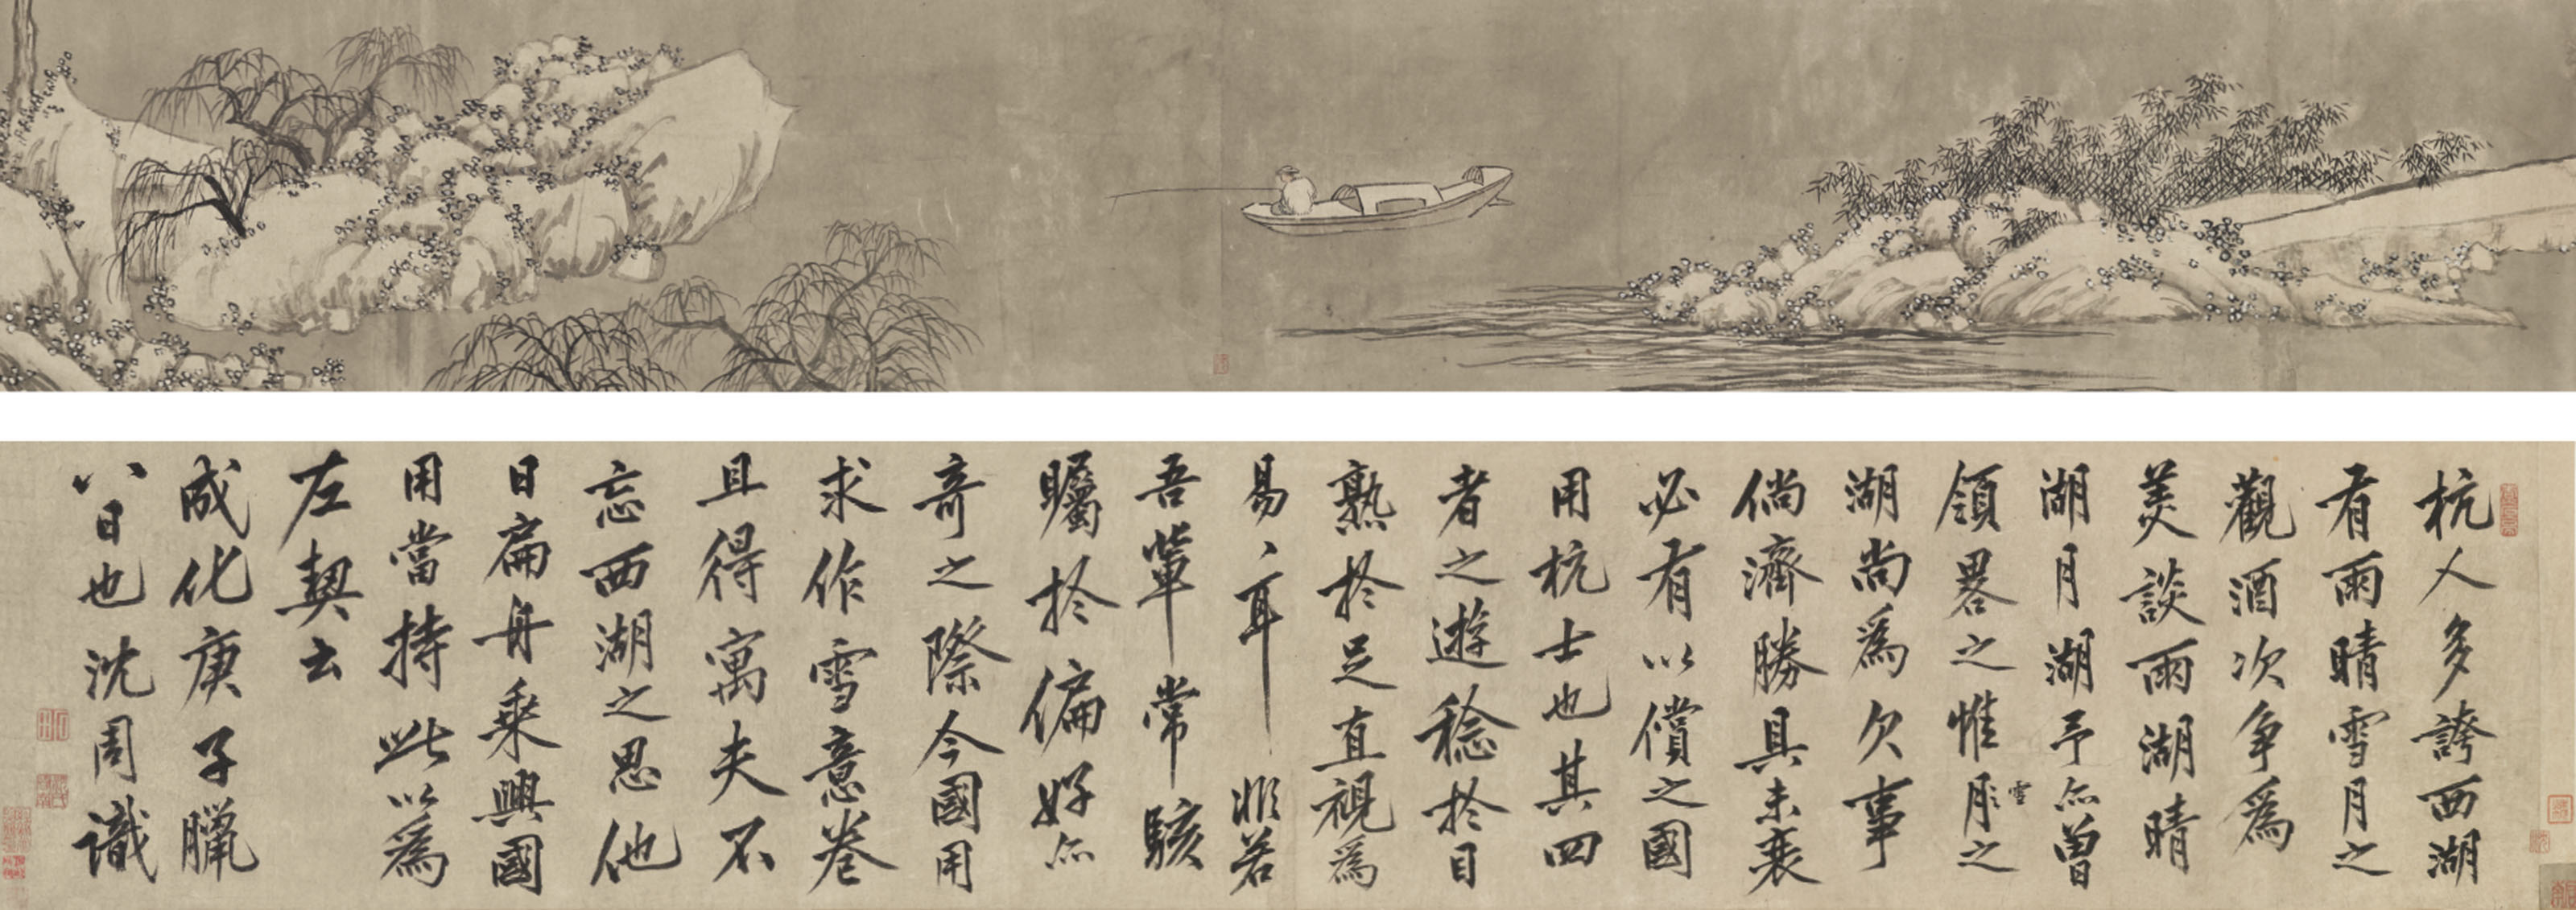 杭人多誇西湖
有雨晴雪月之
觀酒次爭爲
美談雨湖晴
湖月湖予亦曾
領畧之惟月雪之
湖尚爲欠事
倘濟勝具未衰
必有以償之國
用杭士也其四
者之遊稔於目
熟於足直視爲
易〻耳非若
吾輩常駭
矚於偏好亦
奇之際今國用
求作雪意卷
且得寓夫不
忘西湖之思他
日扁舟乘興國
用當持此以爲
左契云
成化庚子臘
八日也沈周識